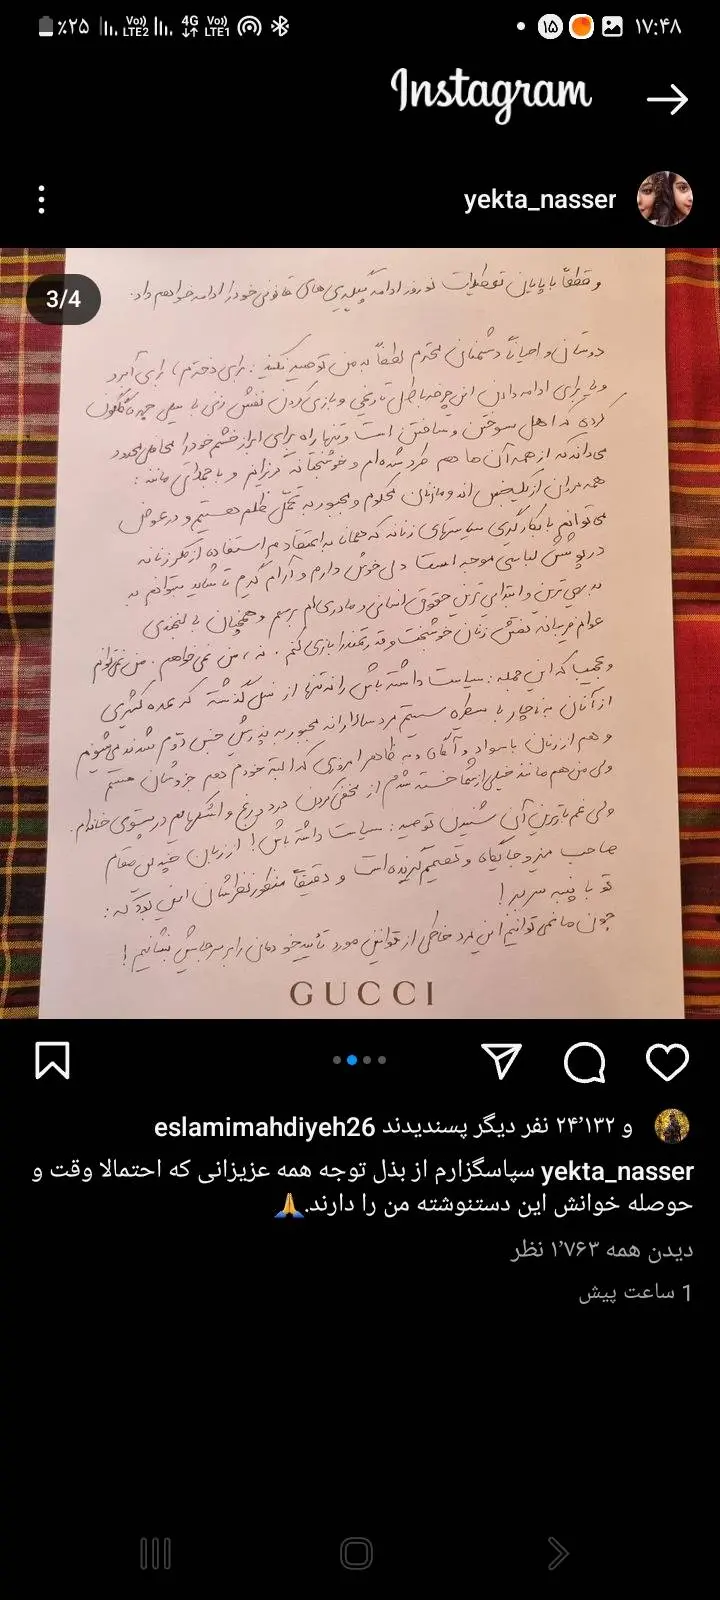 ٪۲۵ Vo)) LTE2 4G Vo)) LTE1 ۱۵ ۱۷:۴۸
Instagram
yekta_nasser
3/4
و قطعاً با پایان تعطیلات نوروز ادامه پیگیری‌های قانونی خود را ادامه خواهم داد.
دوستان و احیاناً دشمنان محترم لطفاً به من توصیه نکنید: برای دخترم یا برای آبرو
و یا برای ادامه دادن این چرخه باطل تاریخی و بازی کردن نقش زنی با سیلی چهره گلگون
کرده که اهل سوختن و ساختن است و تنها راه برای ابراز خشم خود را محافل محدود
می‌داند که از همه آن‌ها هم طرد شده‌ام و خوشبختانه گریزانم و با جملاتی مانند:
همه مردان از یک جنس‌اند و ما زنان محکوم و مجبور به تحمل ظلم هستیم و در عوض
می‌توانم با بکارگیری سیاستهای زنانه که همانا به اعتقادم استفاده از مکر زنانه
در پوشش لباسی موجه است دلی خوش دارم و آرام گیرم تا شاید بتوانم به
بدیهی‌ترین و ابتدایی‌ترین حقوق انسانی و مادری‌ام برسم و همچنان با لبخندی
عوام فریبانه نقش زنان خوشبخت و قدرتمند را بازی کنم. نه، من نمی‌خواهم. من نمی‌توانم
و عجیب که این جمله: سیاست داشته باش را نه تنها از نسل گذشته که عده کثیری
از آنان به ناچار با سیطره سیستم مردسالارانه مجبور به پذیرش جنس دوم شدند می‌شنویم
و هم از زنان باسواد و آگاه و به ظاهر امروزی که البته خودم هم جزوشان هستم
ولی من هم مانند خیلی از شما خسته شدم از مخفی کردن درد و رنج و اشکهایم در پستوی خانه‌ام.
ولی غم بارترین آن شنیدن توصیه: سیاست داشته باش! از زبان چندین مقام
صاحب میز و جایگاه و تصمیم گیرنده است و دقیقاً منظور نظرشان این بود که:
تو با پنبه سر ببر!
چون ما نمی‌توانیم این مرد خاطی از قوانین مورد تأیید خودمان را بر سر جایش بنشانیم!
GUCCI
و ۲۴٬۱۳۲ نفر دیگر پسندیدند eslamimahdiyeh26
yekta_nasser سپاسگزارم از بذل توجه همه عزیزانی که احتمالا وقت و
حوصله خوانش این دستنوشته من را دارند.🙏
دیدن همه ۱٬۷۶۳ نظر
1 ساعت پیش